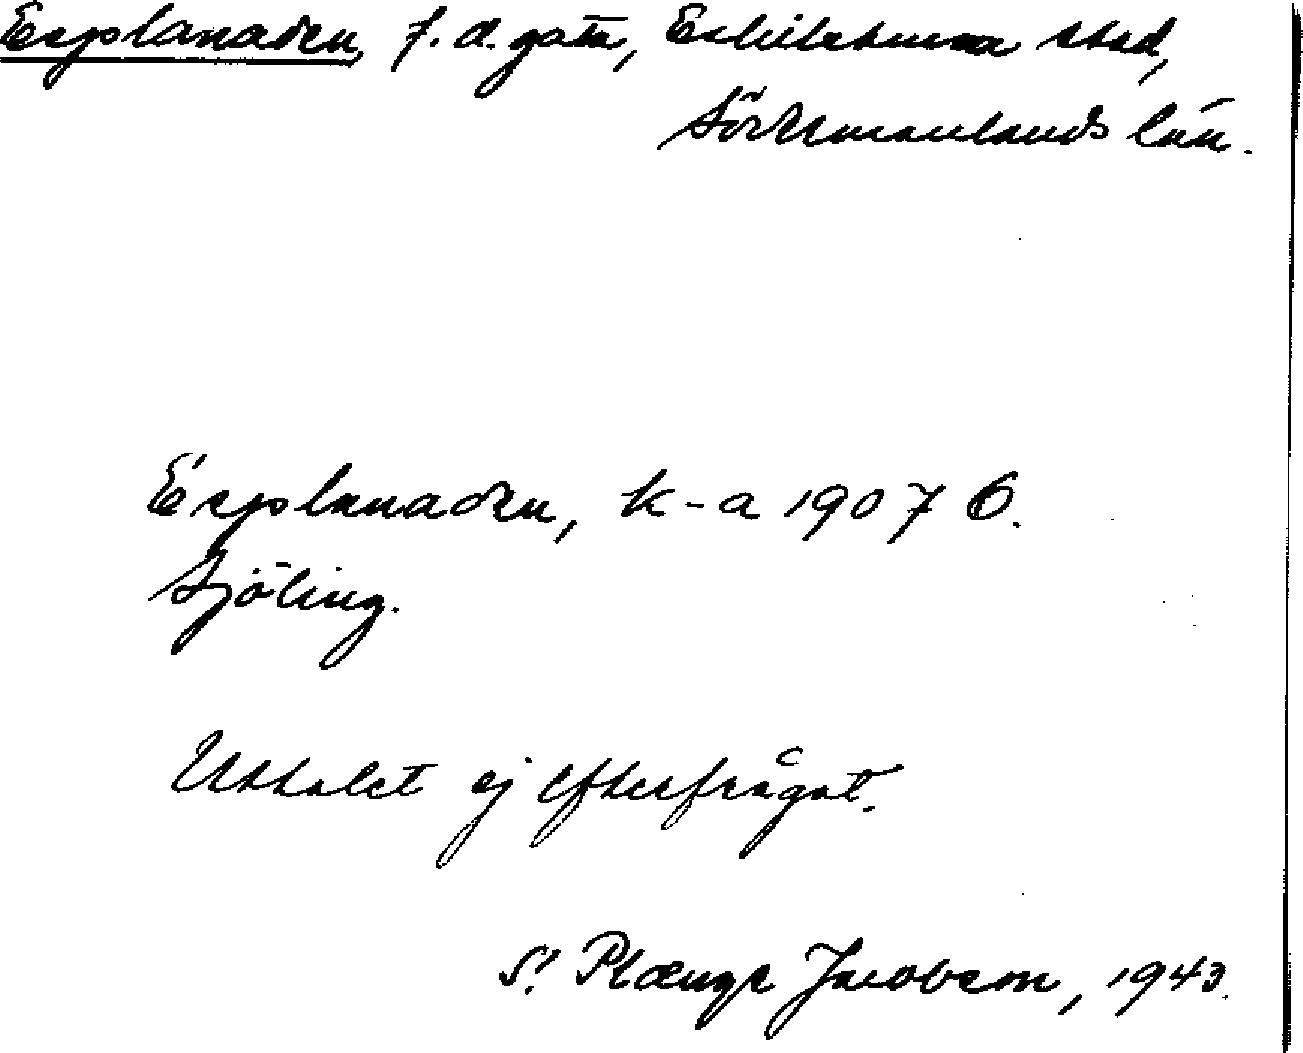 Esplanaden, f. d. gata, Eskilstuna stad,
Södermanlands län.
Esplanaden, k-a 1907 6.
Sjöling.
Uttalet ej efterfrågat.
S. Plænge Jacobson, 1943.